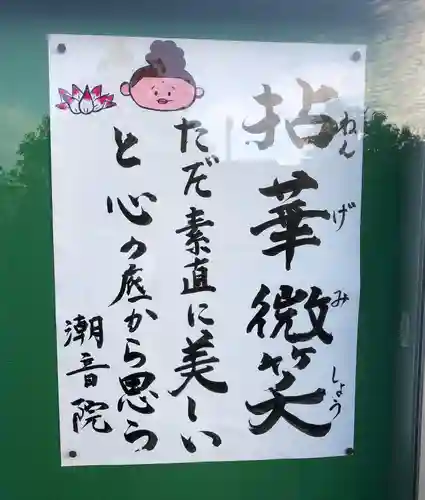 拈華微笑
ねんげみしょう
ただ素直に美しい
と心の底から思う
潮音院